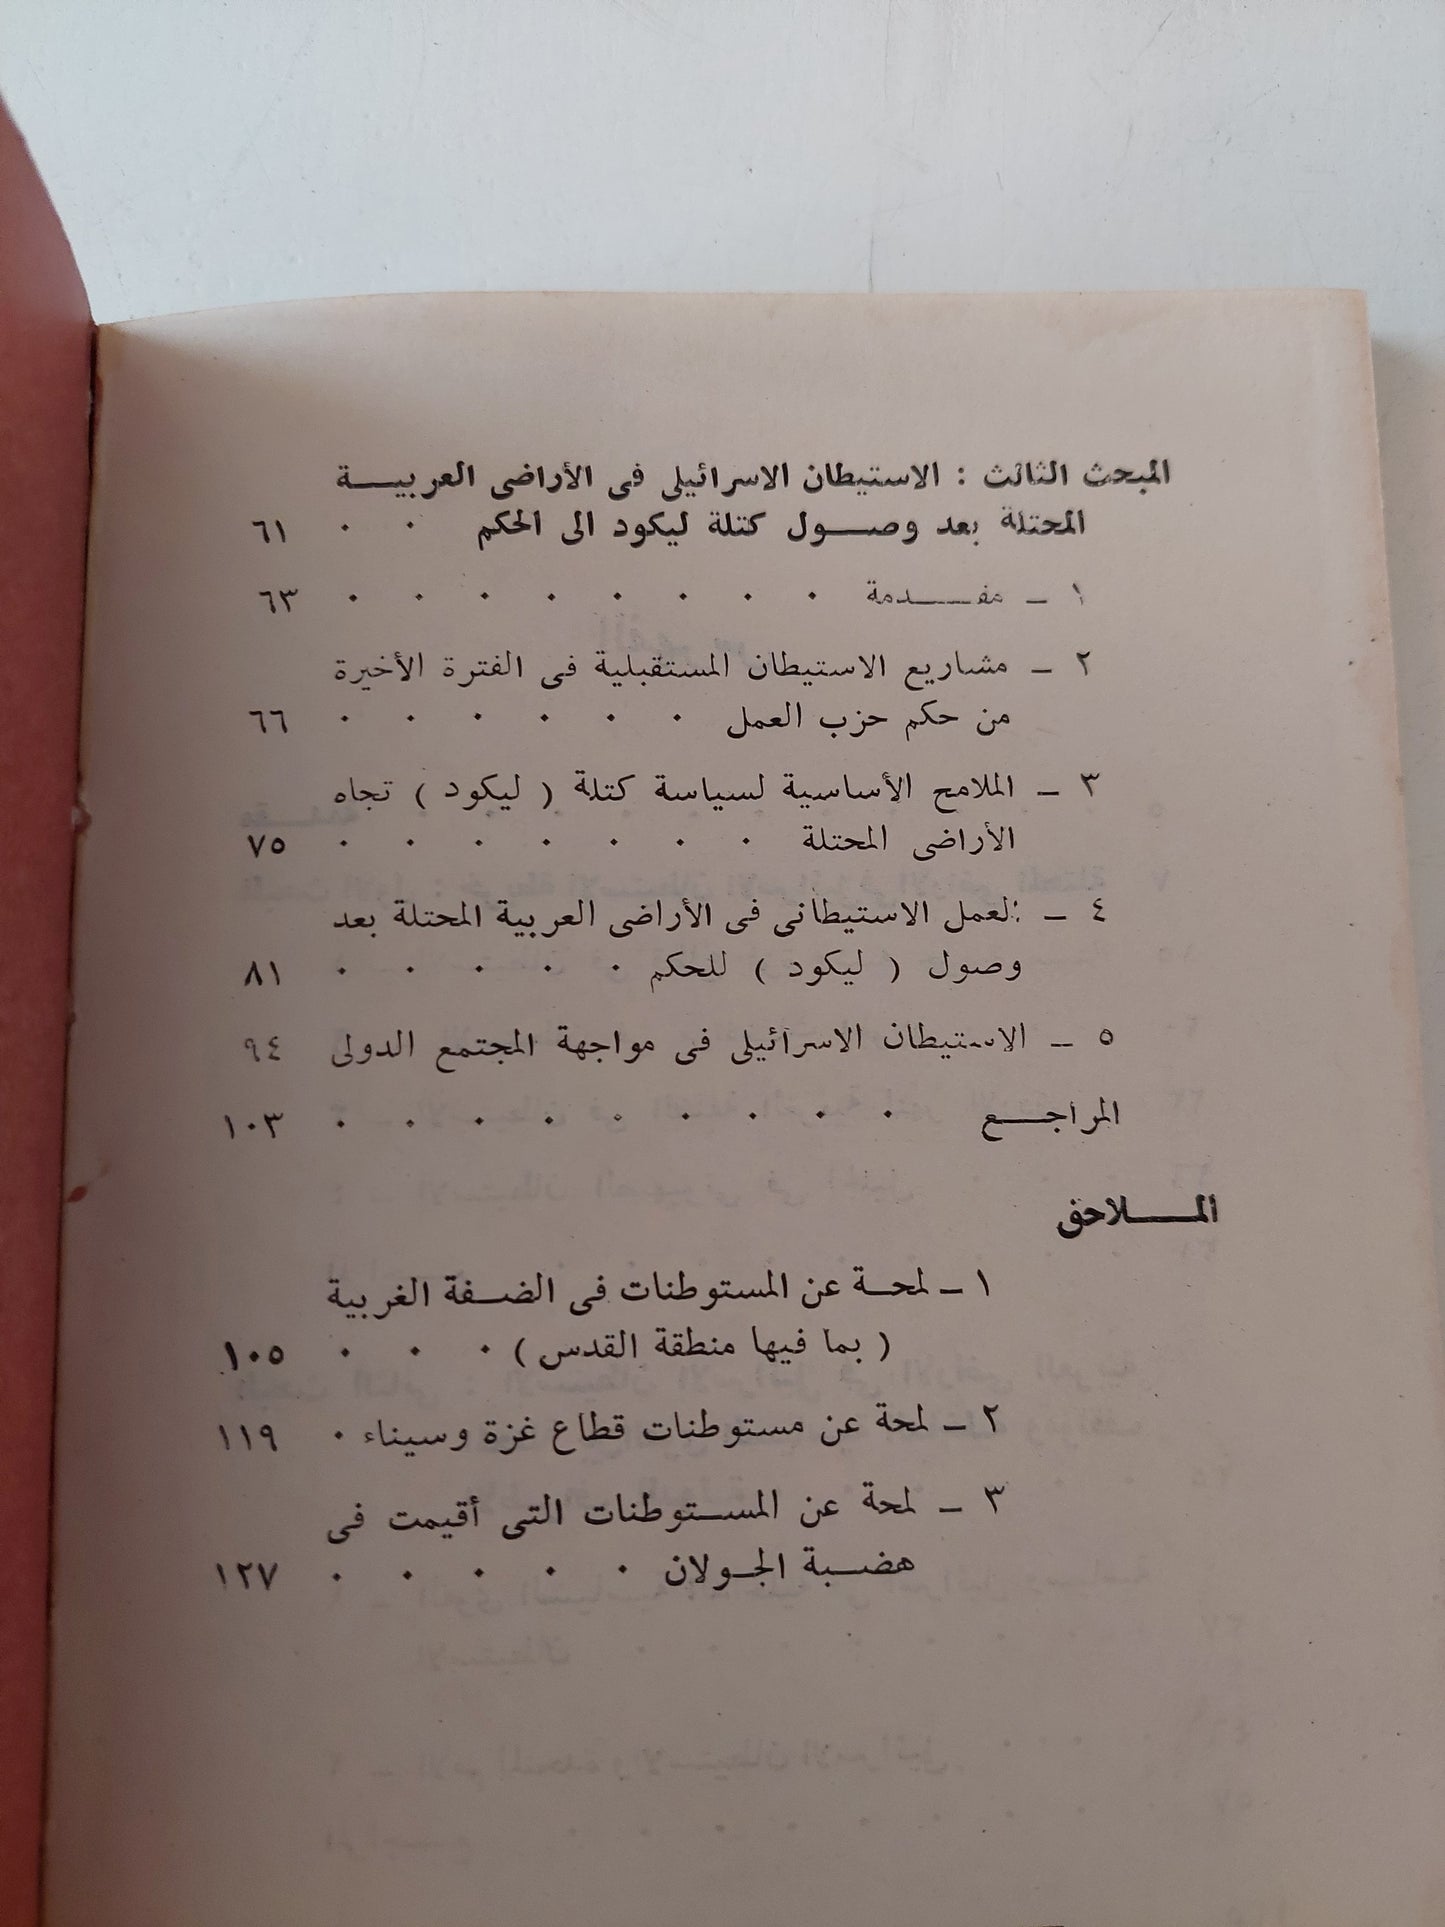 المبحث الثالث : الاستيطان الاسرائيلى فى الأراضى العربيــــة
المحتلة بعد وصــــول كتلة ليكود الى الحكم ٠ ٠ ٦١
١ ـ مقـــــدمة ٠ ٠ ٠ ٠ ٠ ٠ ٠ ٠ ٦٣
٢ ـ مشاريع الاستيطان المستقبلية فى الفترة الأخيرة
من حكم حزب العمل ٠ ٠ ٠ ٠ ٠ ٠ ٦٦
٣ ـ الملامح الأساسية لسياسة كتلة ( ليكود ) تجاه
الأراضى المحتلة ٠ ٠ ٠ ٠ ٠ ٠ ٠ ٧٥
٤ ـ العمل الاستيطانى فى الأراضى العربية المحتلة بعد
وصول ( ليكود ) للحكم ٠ ٠ ٠ ٠ ٠ ٨١
٥ ـ الاستيطان الاسرائيلى فى مواجهة المجتمع الدولى ٩٤
المراجــــع ٠ ٠ ٠ ٠ ٠ ٠ ٠ ٠ ٠ ١٠٣
المـــــلاحق
١ ـ لمحــة عن المستوطنات فى الضــفة الغربية
( بما فيها منطقة القدس ) ٠ ٠ ٠ ١٠٥
٢ ـ لمحة عن مستوطنات قطاع غزة وسيناء ٠ ١١٩
٣ ـ لمحة عن المســتوطنات التى أقيمت فى
هضــبة الجـولان ٠ ٠ ٠ ٠ ٠ ١٢٧